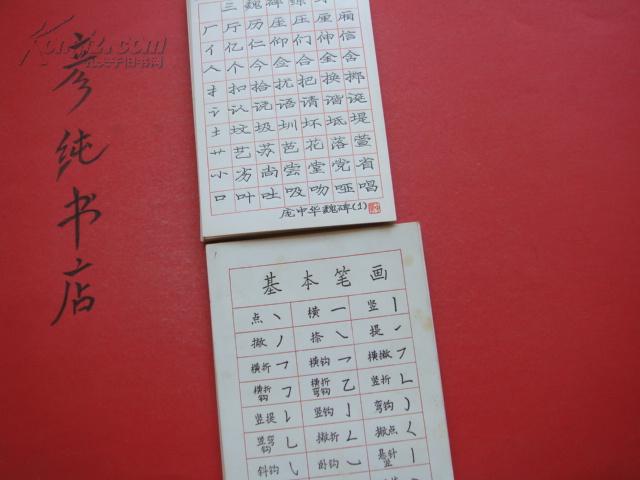 彦纯书店
三魏碑练习
厂厅历压厘厢
亻亿仁仰们仲信
人个今佥合金舍
扌扣拾扰把换掷
讠认说语请谐诞
土坟圾圳坏坻堤
艹艺苏芭花落萱
小劣尚尝堂党省
口叶吐吸吻哑唱
庞中华魏碑(1)
基本笔画
点丶 横一 竖丨
撇丿 捺㇏ 提㇀
横折㇕ 横钩㇖ 横撇㇇
横折钩㇆ 横折弯钩㇈ 竖折㇗
竖提㇙ 竖钩亅 弯钩㇁
竖弯钩㇟ 撇折㇜ 撇点㇛
斜钩㇂ 卧钩㇃ 悬针竖丨